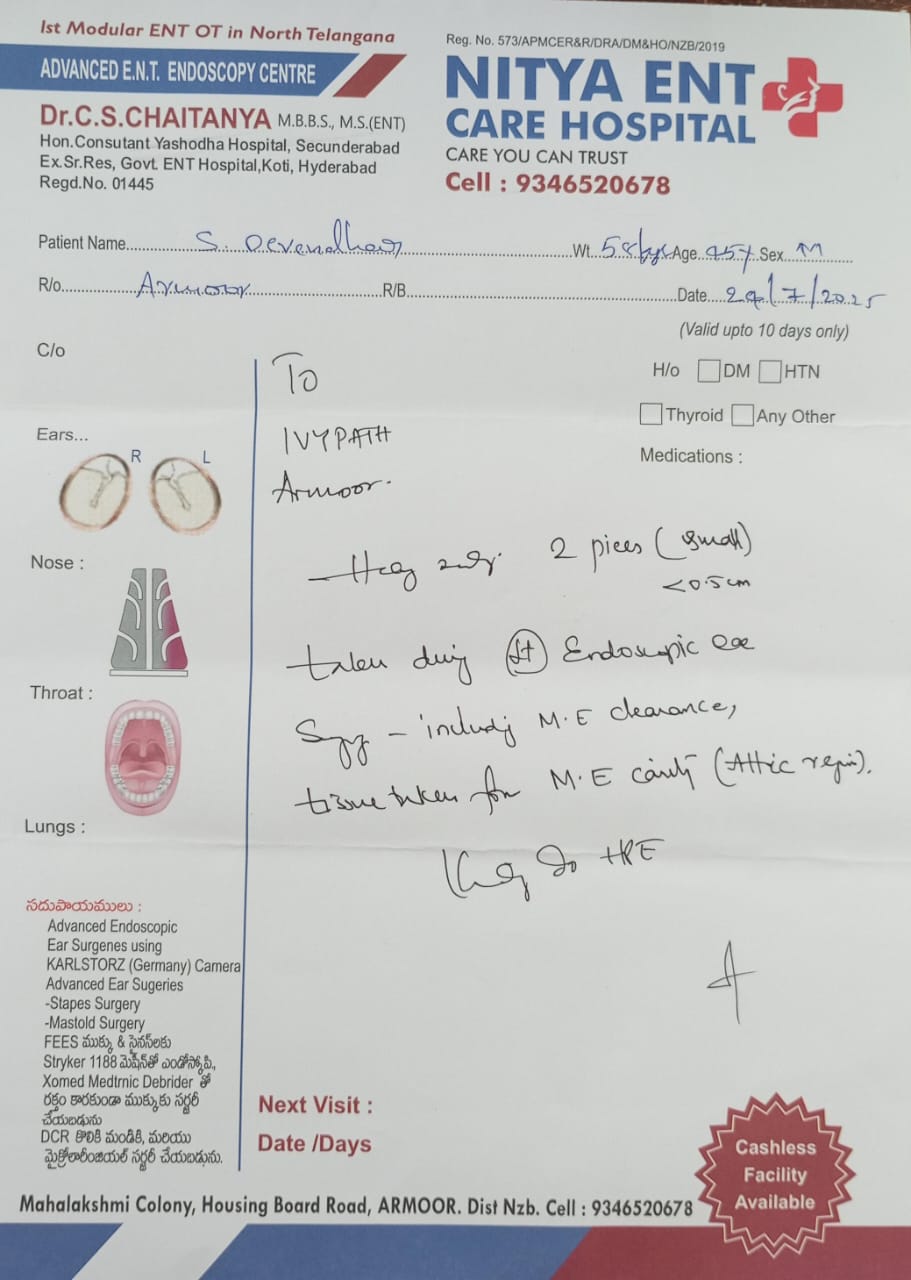 Ist Modular ENT OT in North Telangana
ADVANCED E.N.T. ENDOSCOPY CENTRE
Dr.C.S.CHAITANYA M.B.B.S., M.S.(ENT)
Hon.Consutant Yashodha Hospital, Secunderabad
Ex.Sr.Res, Govt. ENT Hospital,Koti, Hyderabad
Regd.No. 01445
Reg. No. 573/APMCER&R/DRA/DM&HO/NZB/2019
NITYA ENT
CARE HOSPITAL
CARE YOU CAN TRUST
Cell : 9346520678
Patient Name S. Wt. 58kgs Age 45y Sex M
R/o Armoor R/B Date 29/7/2025
(Valid upto 10 days only)
C/o
H/o DM HTN
Thyroid Any Other
Medications :
Ears...
R L
Nose :
Throat :
Lungs :
To
IVYPATH
Armoor.
2 pices (small)
<0.5cm
taken Endoscopic
- M.E clearance,
tissue taken M.E (Attic
HPE
సదుపాయములు :
Advanced Endoscopic
Ear Surgenes using
KARLSTORZ (Germany) Camera
Advanced Ear Sugeries
-Stapes Surgery
-Mastold Surgery
FEES ముక్కు & సైనస్‌లకు
Stryker 1188 మెషీన్‌తో ఎండోస్కోపి,
Xomed Medtrnic Debrider తో
రక్తం కారకుండా ముక్కుకు సర్జరీ
చేయబడును
DCR కొలికి మండికి, మరియు
మైక్రోలారింజియల్ సర్జరీ చేయబడును.
Next Visit :
Date /Days
Cashless
Facility
Available
Mahalakshmi Colony, Housing Board Road, ARMOOR. Dist Nzb. Cell : 9346520678